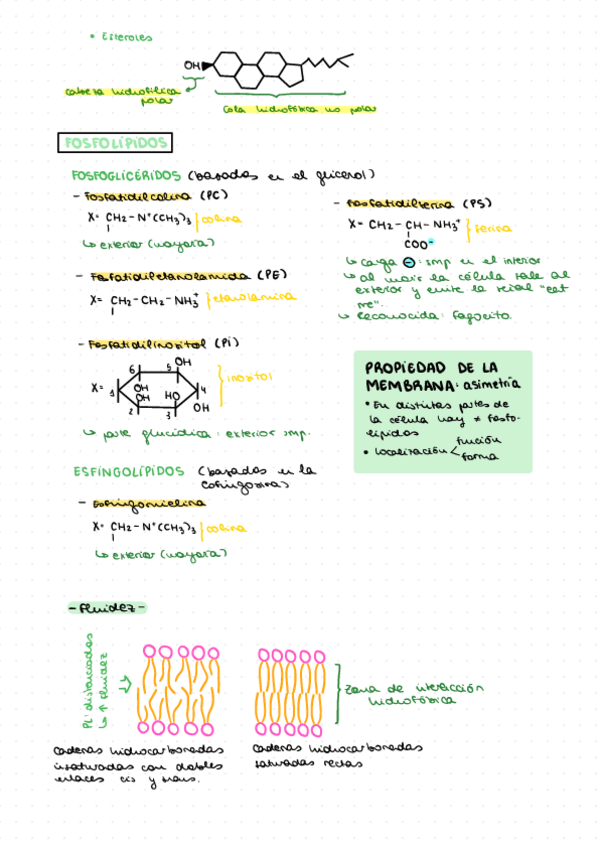 • Esteroles
OH
cabeza hidrofílica
polar
Cola hidrofóbica no polar
FOSFOLÍPIDOS
FOSFOGLICÉRIDOS (basados en el glicerol)
- Fosfatidilcolina (PC)
X= CH2 - N+(CH3)3 colina
↳ exterior (mayoría)
- Fosfatidiletanolamida (PE)
X= CH2 - CH2 - NH3+ etanolamina
- Fosfatidilinositol (Pi)
X= 1 2 3 4 5 6 OH OH OH HO OH inositol
↳ parte glucídica: exterior smp.
- Fosfatidilserina (PS)
X= CH2 - CH - NH3+ serina
COO-
↳ carga ⊖: smp en el interior
↳ al morir la célula sale al
exterior y emite la señal "eat
me".
↳ Reconocida: fagocito.
PROPIEDAD DE LA
MEMBRANA: asimetría
• En distintas partes de
la célula hay ≠ fosfo-
lípidos
• Localización < función
forma
ESFINGOLÍPIDOS (basados en la
esfingosina)
- Esfingomielina
X= CH2 - N+(CH3)3 colina
↳ exterior (mayoría)
- Fluidez -
PL: distanciados
↳ ↑ fluidez
Zona de interacción
hidrofóbica
Cadenas hidrocarbonadas
insaturadas con dobles
enlaces cis y trans.
Cadenas hidrocarbonadas
saturadas rectas